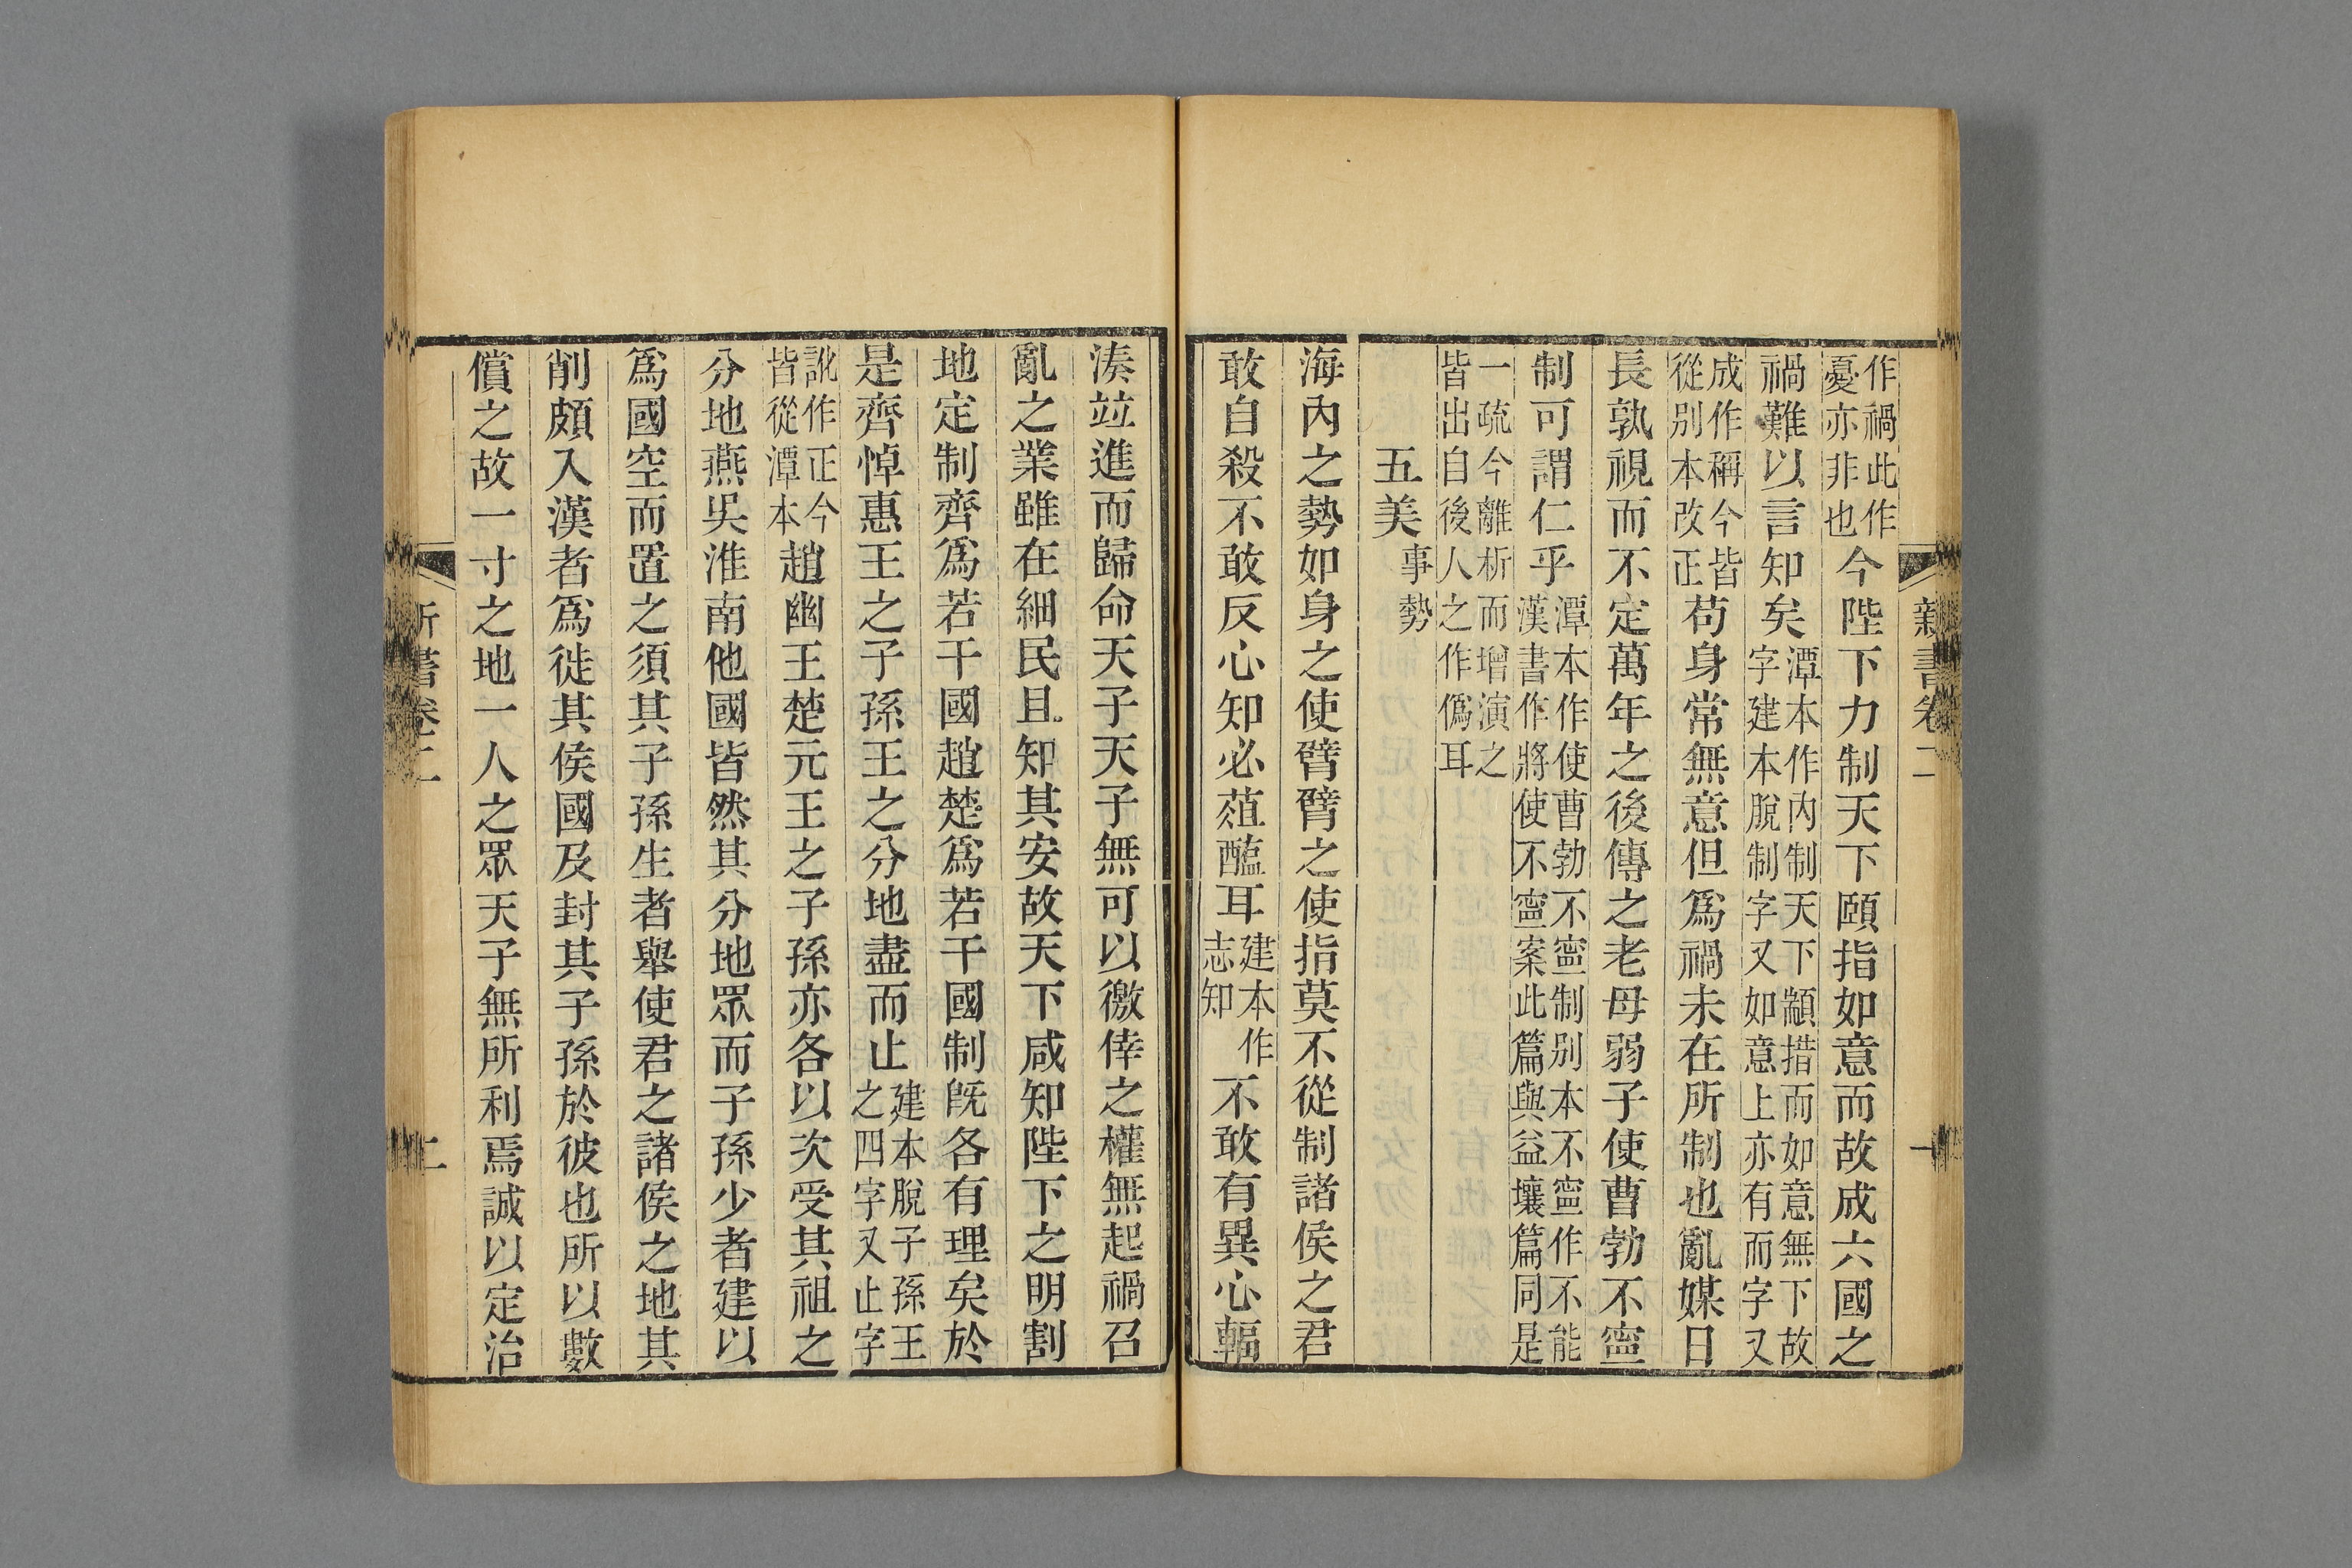 新書卷二
作禍此作憂亦非也今陛下力制天下頤指如意而故成六國之
禍難以言知矣潭本作內制天下顓措而如意無下故字建本脫制字又如意上亦有而字又
成作稱今皆從别本改正苟身常無意但爲禍未在所制也亂媒日
長孰視而不定萬年之後傳之老母弱子使曹勃不寍
制可謂仁乎潭本作使曹勃不寍制别本不寍作不能漢書作將使不寍案此篇與益壤篇同是
一疏今離析而增演之皆出自後人之作僞耳
五美事勢
海內之勢如身之使臂臂之使指莫不從制諸侯之君
敢自殺不敢反心知必葅醢耳建本作志知不敢有異心輻
湊竝進而歸命天子天子無可以徼倖之權無起禍召
亂之業雖在細民且知其安故天下咸知陛下之明割
地定制齊爲若干國趙楚爲若干國制旣各有理矣於
是齊悼惠王之子孫王之分地盡而止建本脫子孫王之四字又止字
訛作正今皆從潭本趙幽王楚元王之子孫亦各以次受其祖之
分地燕吳淮南他國皆然其分地眾而子孫少者建以
爲國空而置之須其子孫生者舉使君之諸侯之地其
削頗入漢者爲徙其侯國及封其子孫於彼也所以數
償之故一寸之地一人之眾天子無所利焉誠以定治
新書卷二
二